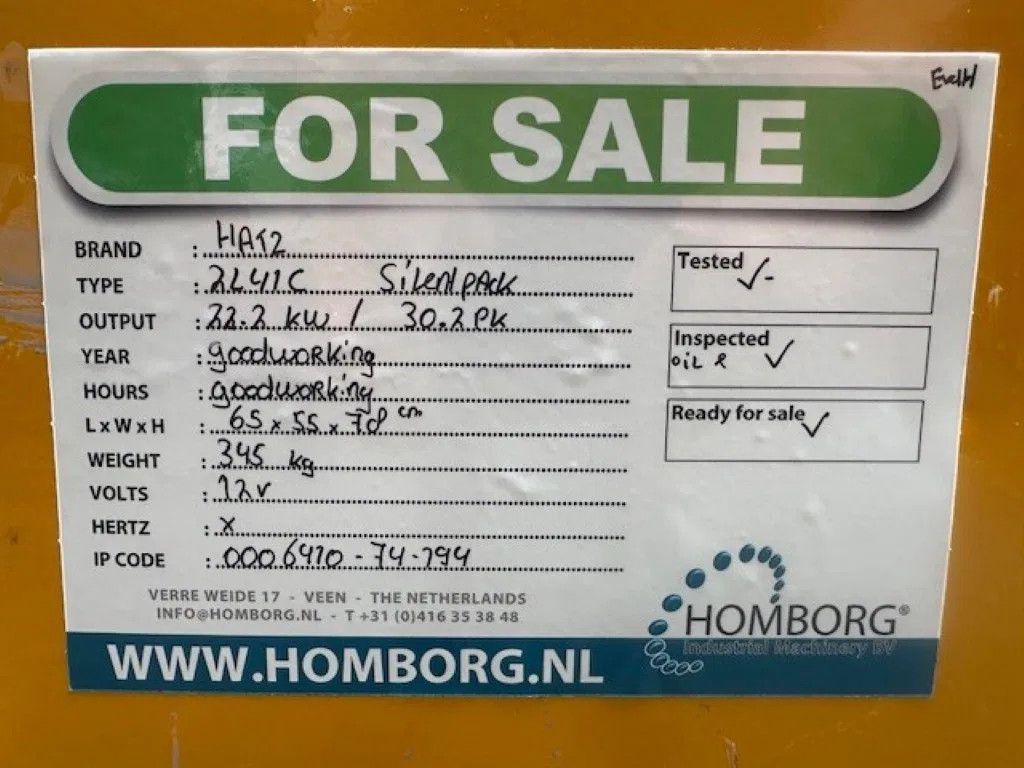 FOR SALE
BRAND : HATZ
TYPE : 2L41C Silentpack
OUTPUT : 22.2 kW / 30.2 PK
YEAR : goodworking
HOURS : goodworking
L x W x H : 65 x 55 x 78 cm
WEIGHT : 345 kg
VOLTS : 12v
HERTZ : x
IP CODE : 0006410-74-194
Tested ✓-
Inspected
oil & ✓
Ready for sale ✓
VERRE WEIDE 17 - VEEN - THE NETHERLANDS
INFO@HOMBORG.NL - T +31 (0)416 35 38 48
HOMBORG®
Industrial Machinery BV
WWW.HOMBORG.NL